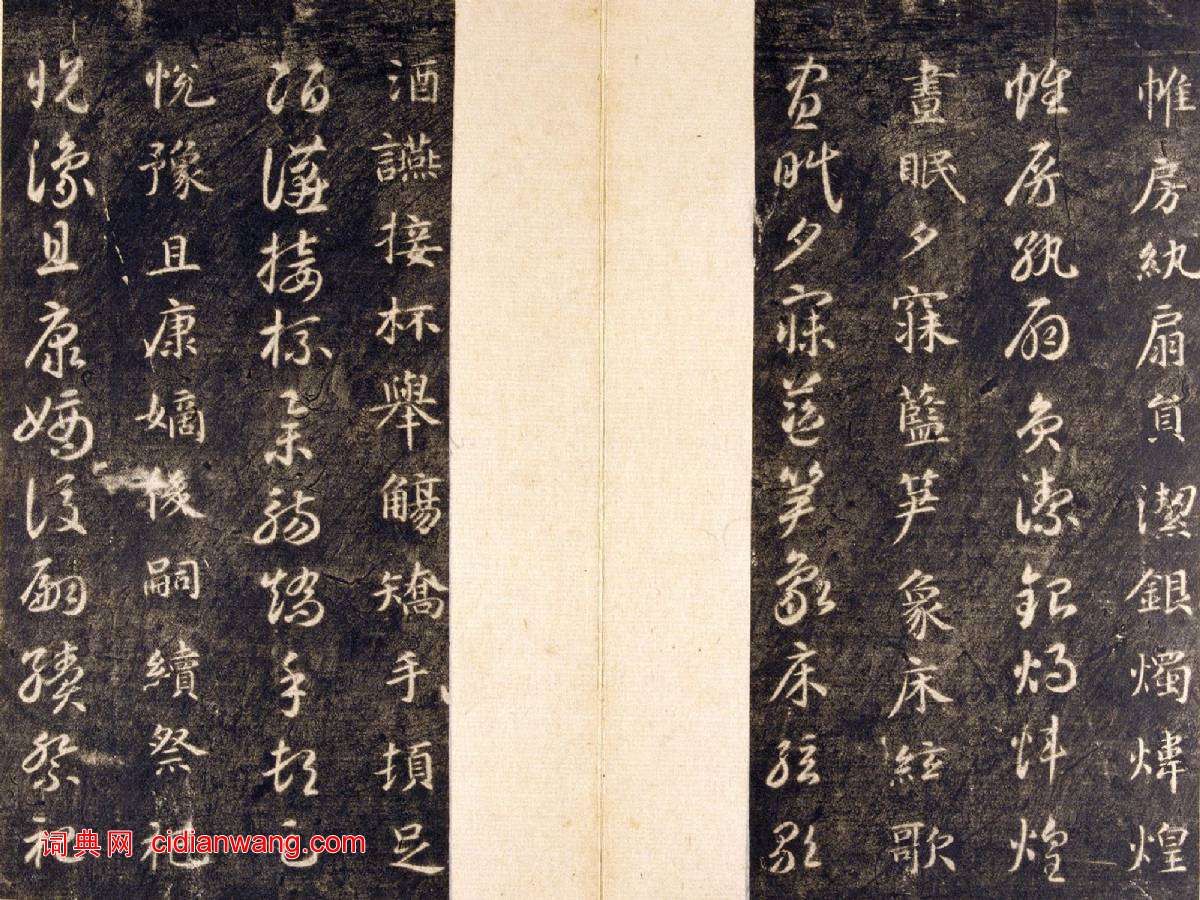 帷房紈扇員潔銀燭煒煌
帷房紈扇員潔銀燭煒煌
晝眠夕寐藍笋象床絃歌
晝眠夕寐藍笋象床絃歌
酒讌接杯舉觴矯手頓足
酒讌接杯舉觴矯手頓足
悅豫且康嫡後嗣續祭祀
悅豫且康嫡後嗣續祭祀
词典网 cidianwang.com